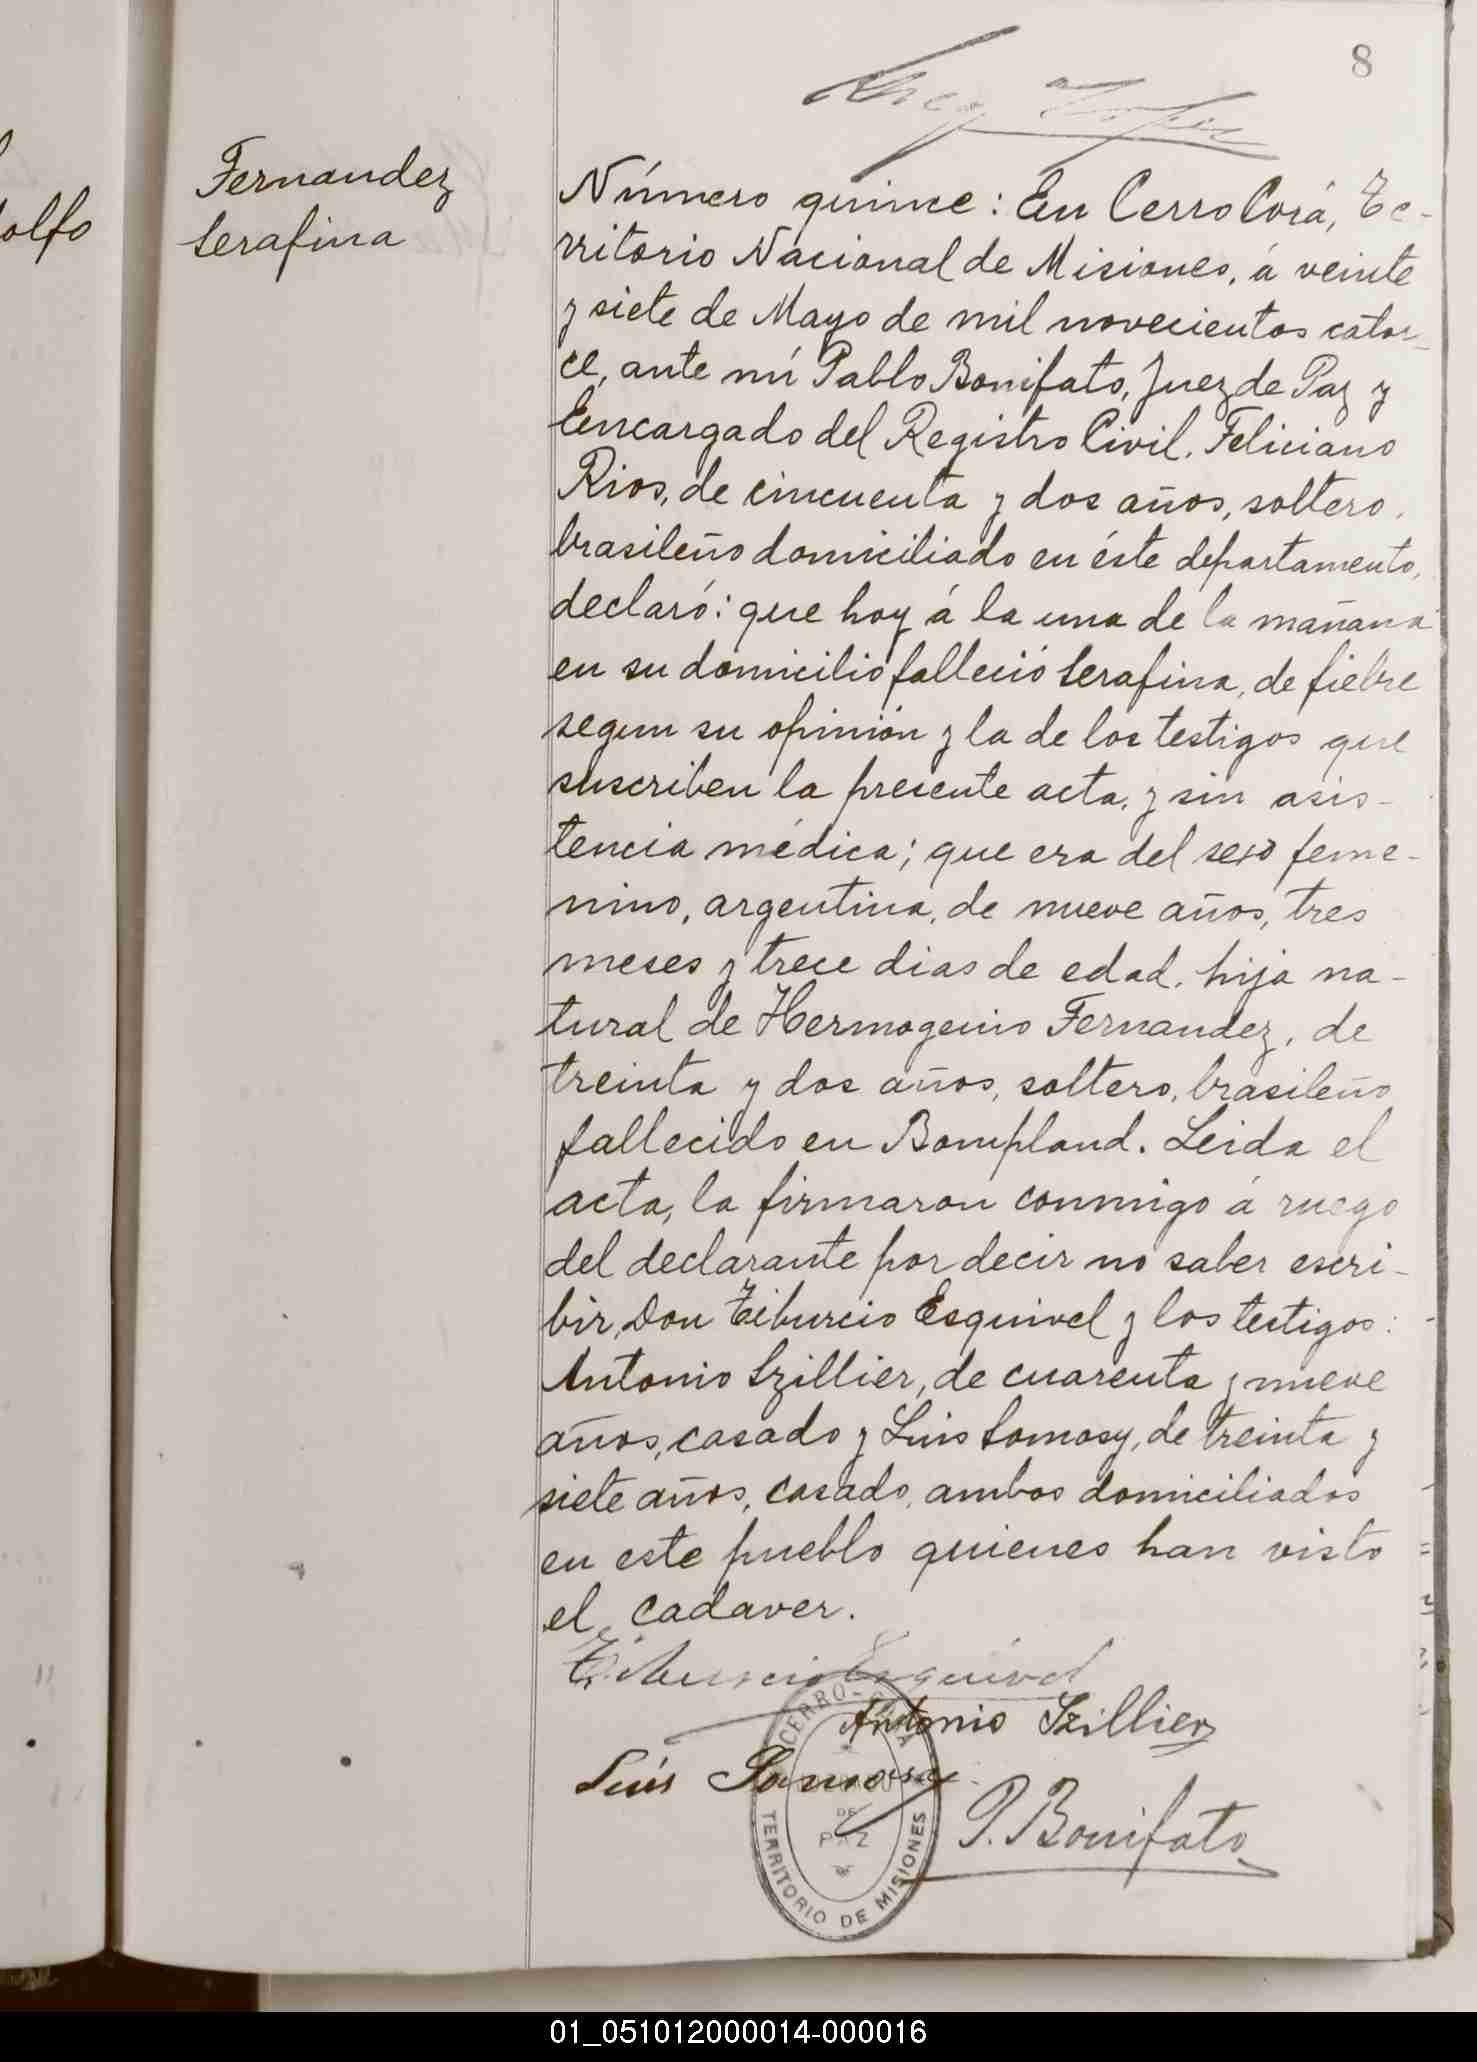 8
olfo
Fernandez
Serafina
Número quince: En Cerro Corá, Te-
rritorio Nacional de Misiones, á veinte
y siete de Mayo de mil novecientos cator-
ce, ante mi Pablo Bonifato, Juez de Paz y
Encargado del Registro Civil. Feliciano
Rios, de cincuenta y dos años, soltero,
brasileño domiciliado en éste departamento,
declaró: que hoy á la una de la mañana
en su domicilio falleció Serafina, de fiebre
segun su opinión y la de los testigos que
suscriben la presente acta, y sin asis-
tencia médica; que era del sexo feme-
nino, argentina, de nueve años, tres
meses y trece dias de edad, hija na-
tural de Hermogenio Fernandez, de
treinta y dos años, soltero, brasileño
fallecido en Bompland. Leida el
acta, la firmaron conmigo á ruego
del declarante por decir no saber escri-
bir, Don Tiburcio Esquivel y los testigos:
Antonio Szillier, de cuarenta y nueve
años, casado y Luis Somosy, de treinta y
siete años, casado, ambos domiciliados
en este pueblo quienes han visto
el cadaver.
Tiburcio Esquivel
Antonio Szillier
Luis Somosy
P. Bonifato
CERRO-CORA
JUZGADO
DE
PAZ
TERRITORIO DE MISIONES
01_051012000014-000016